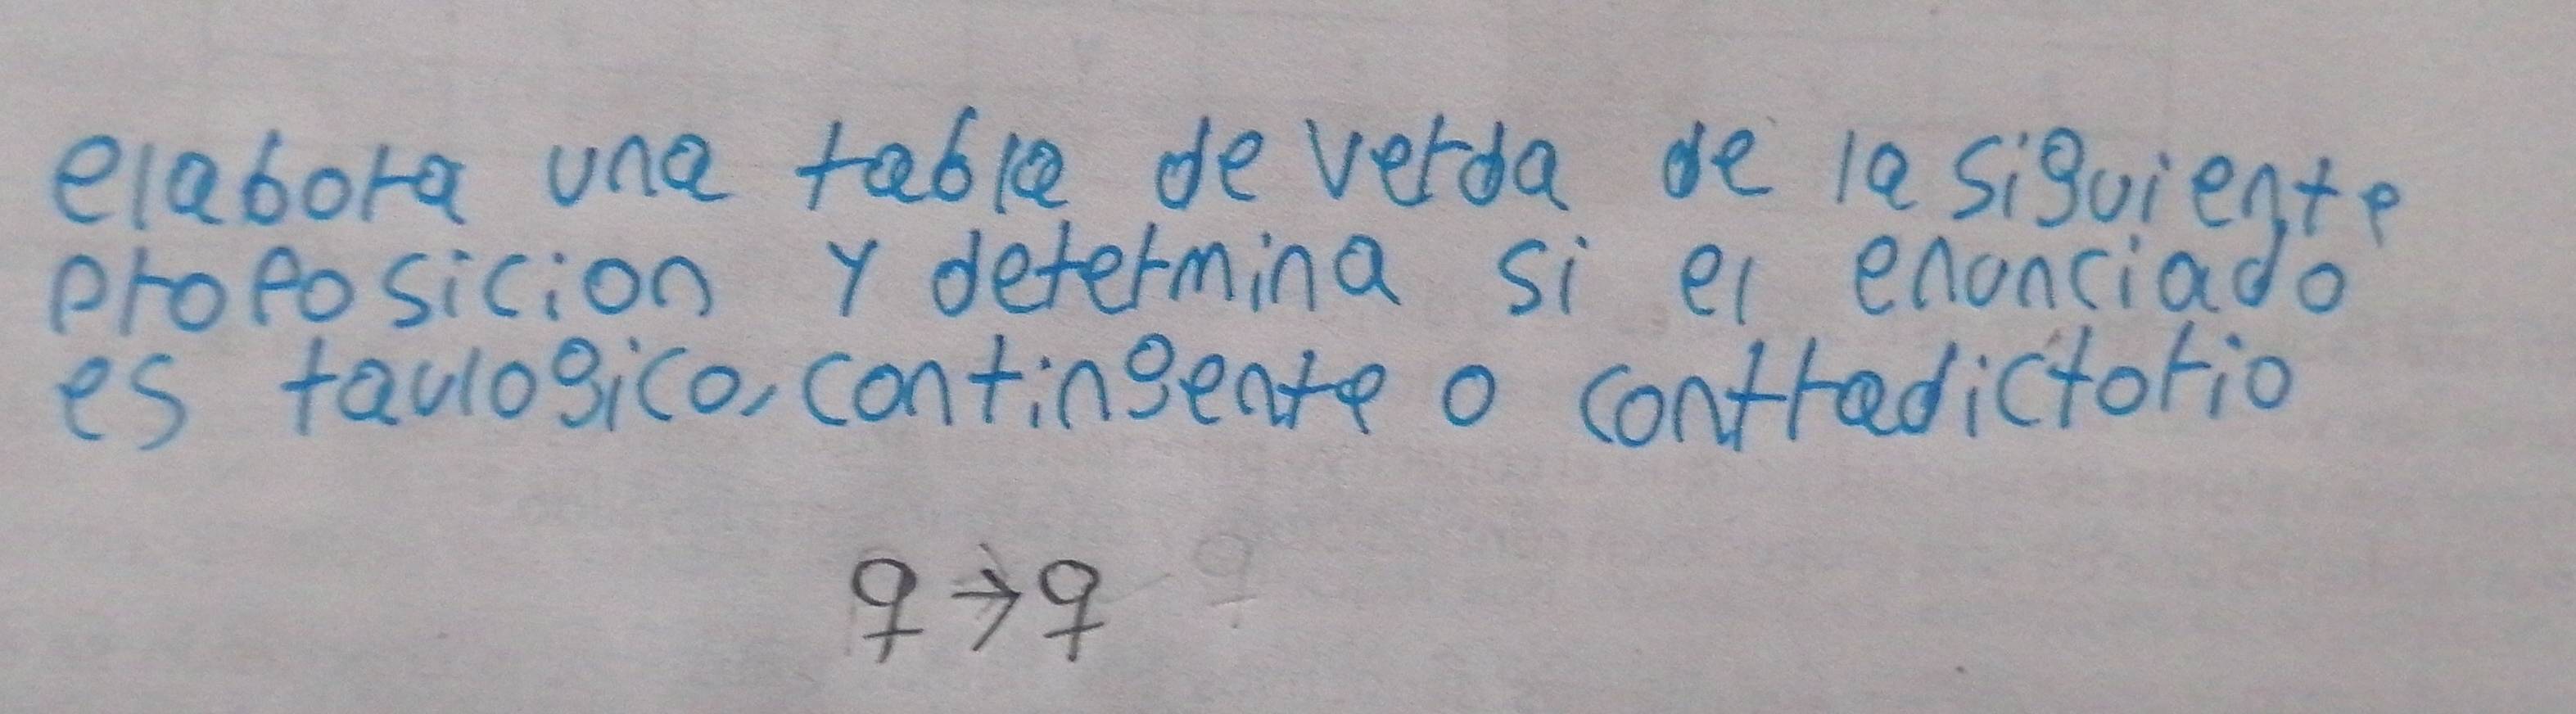 elabora una tabla de verda de la siguiente
proposicion y determina si el enunciado
es taulogico, contingente o contradictorio
q → q